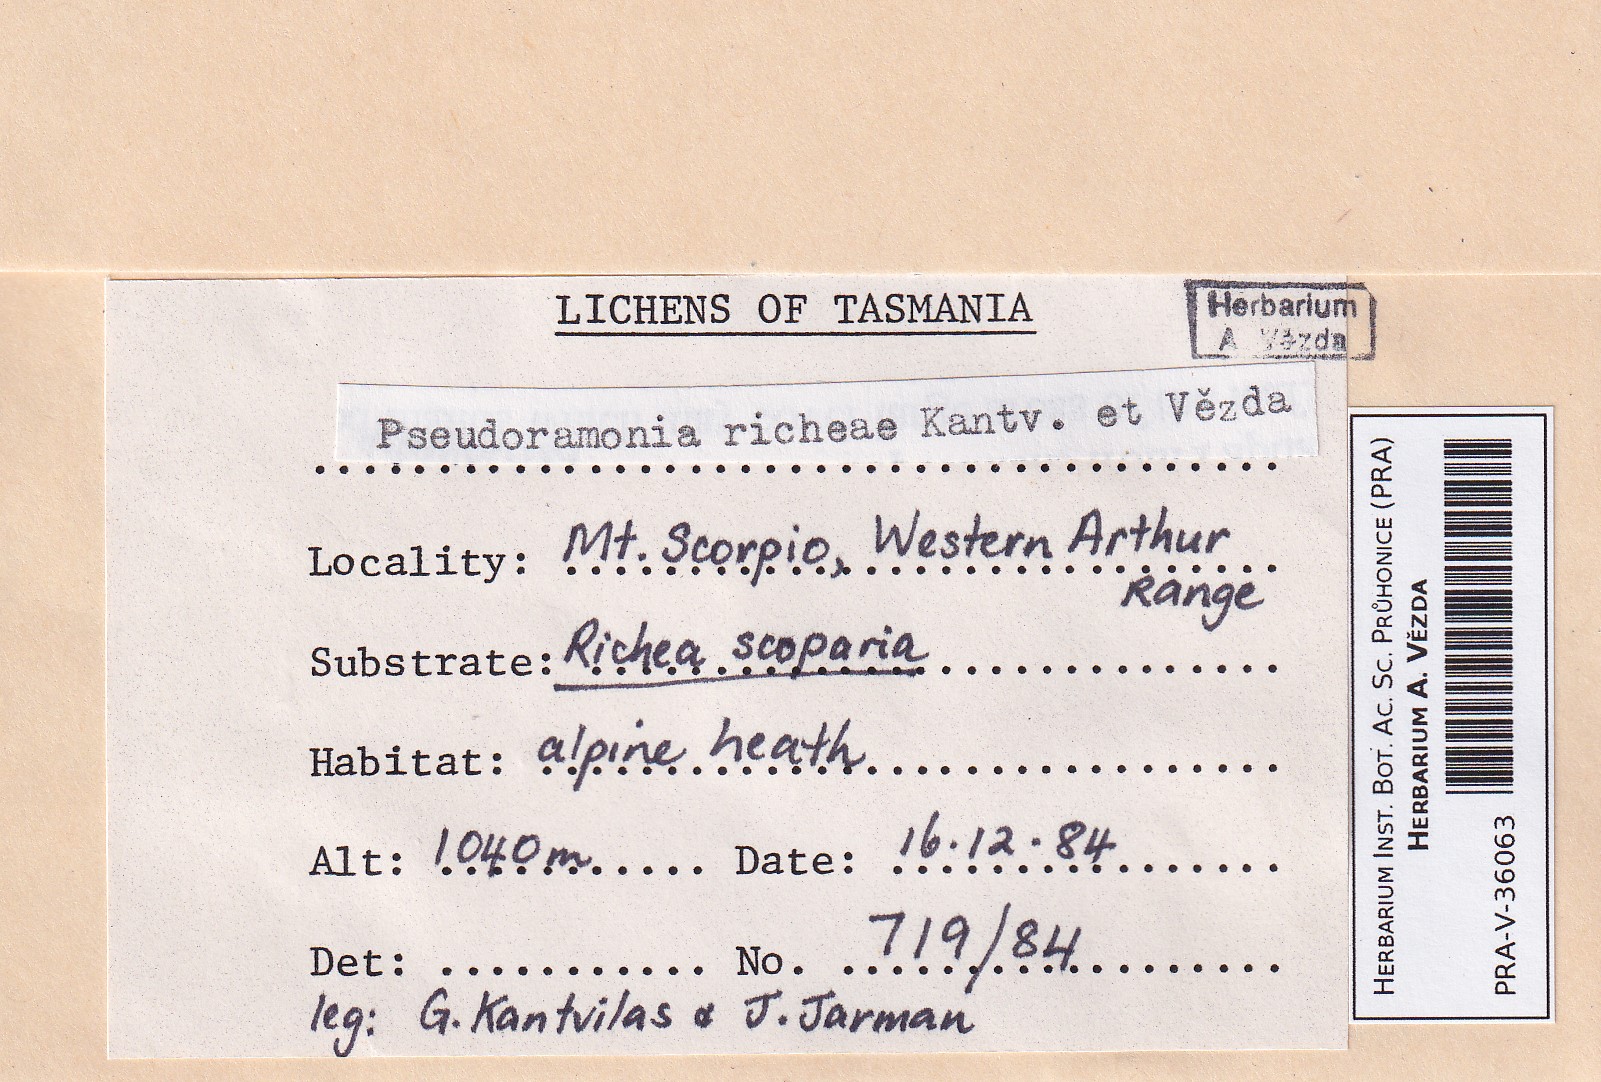 LICHENS OF TASMANIA
Herbarium
A Vězda
Pseudoramonia richeae Kantv. et Vězda
Locality: Mt. Scorpio, Western Arthur
Range
Substrate: Richea scoparia
Habitat: alpine heath
Alt: 1040m Date: 16.12.84
Det: ........... No. 719/84
leg: G. Kantvilas & J. Jarman
HERBARIUM INST. BOT. AC. SC. PRŮHONICE (PRA)
HERBARIUM A. VĚZDA
PRA-V-36063